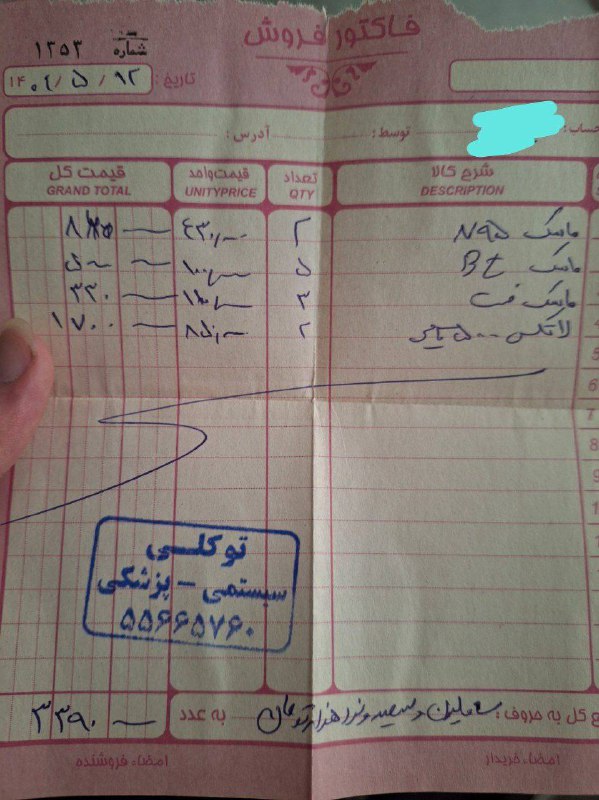 فاکتور فروش
شماره ۱۲۵۳
تاریخ: ۱۴۰۲/۵/۱۲
حساب: توسط: آدرس:
شرح کالا تعداد قیمت واحد قیمت کل
DESCRIPTION QTY UNITYPRICE GRAND TOTAL
ماسک N95 ۲ ۴۳۰/۰۰۰
ماسک Bt ۵ ۱۰۰/۰۰۰ ۵۰۰
ماسک ۳ ۳۳۰
لاتکس ۵۰۰ تایی ۲ ۸۵۰/۰۰۰ ۱۷۰۰
5
6
7
8
9
توکلی
سیستمی - پزشکی
۵۵۶۶۵۷۶۰
ع کل به حروف: سه ملیون و سیصد و نود هزار تومان به عدد ۳۳۹۰
امضاء خریدار امضاء فروشنده